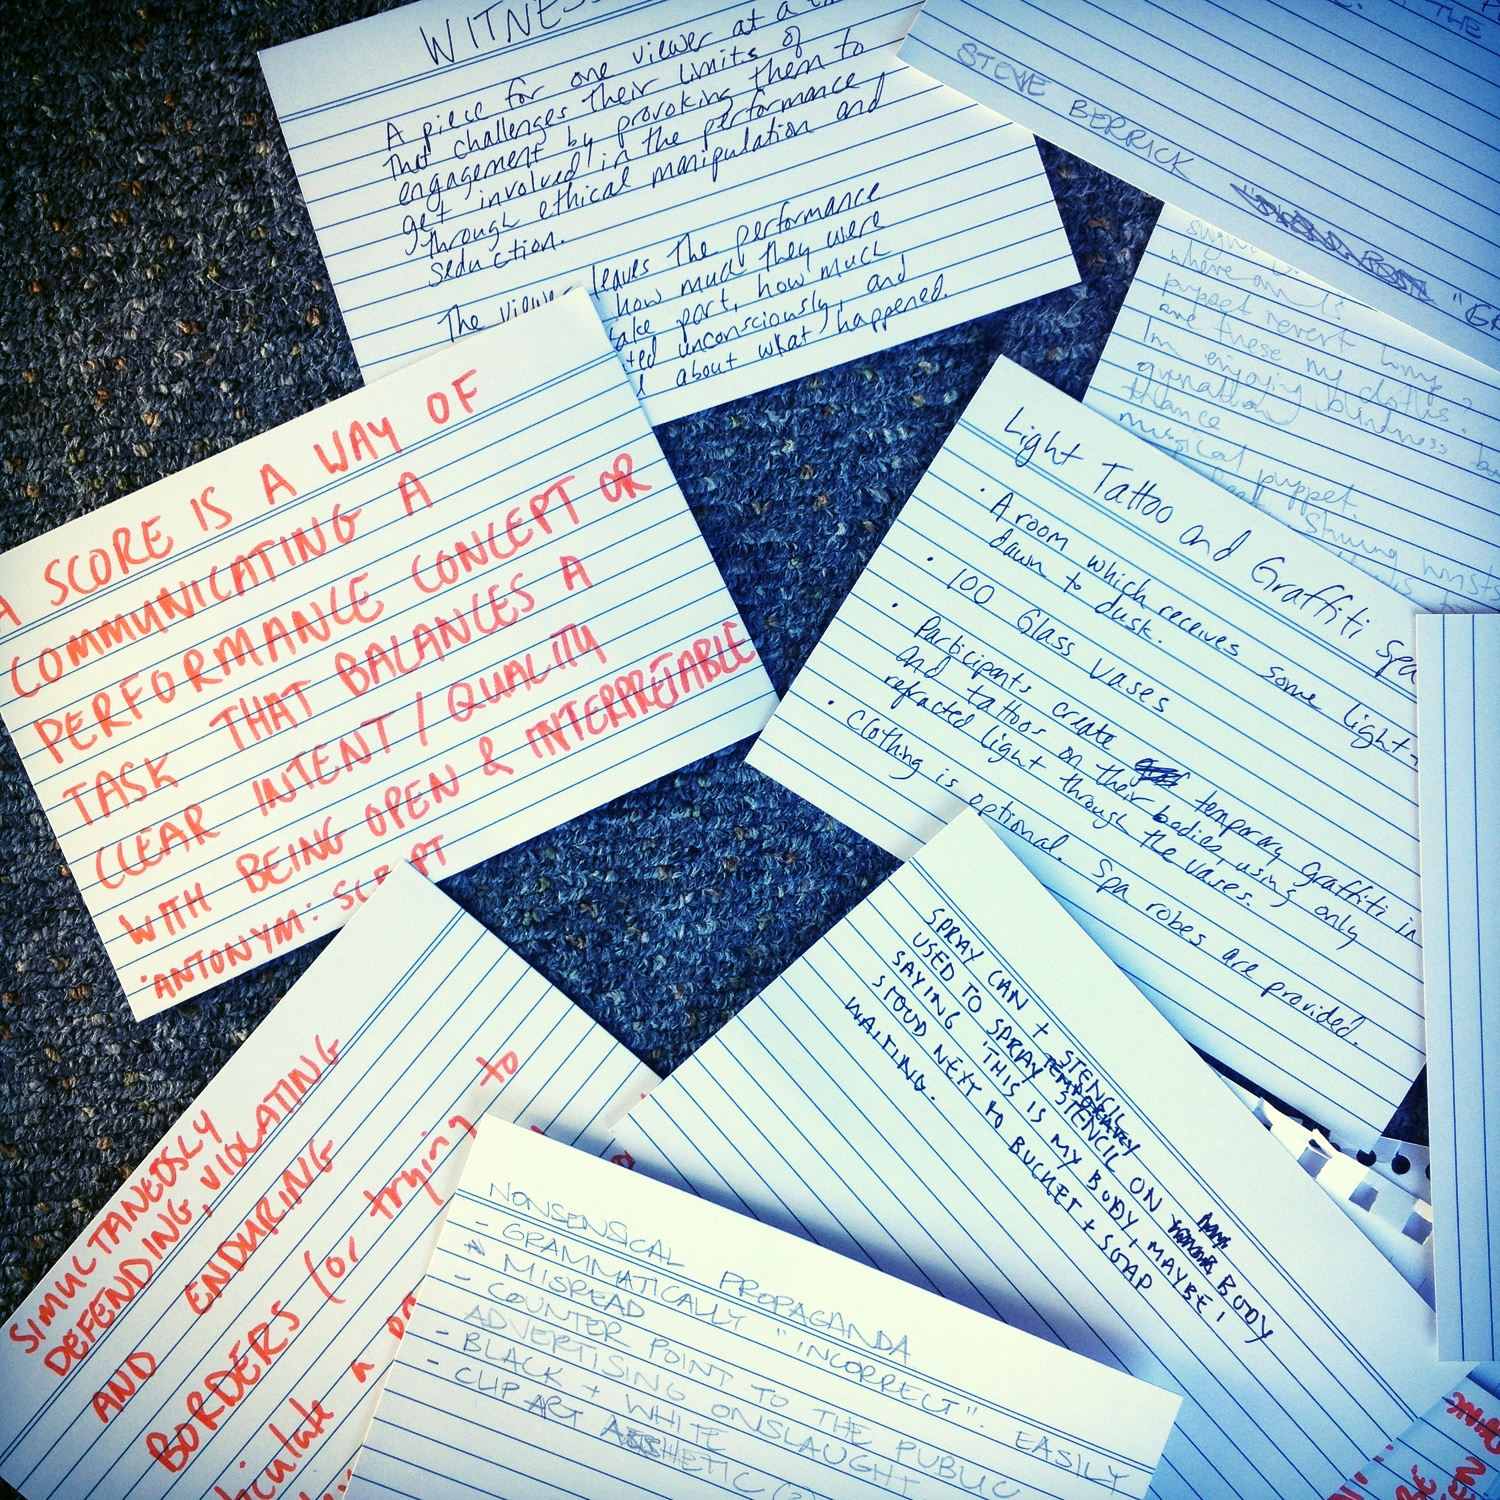 WITNESS
A piece for one viewer at a
that challenges their limits of
engagement by provoking them to
get involved in the performance
through ethical manipulation and
seduction.
The viewer leaves the performance
how much they were
take part, how much
ted unconsciously, and
about what happened.
THE
STEVE BERRICK
where am I?
puppet revert limp
are these my clothes?
I'm enjoying blindness
musical puppet.
Light Tattoo and Graffiti Spa
· A room which receives some light,
dawn to dusk.
· 100 Glass vases
· Participants create temporary graffiti in
and tattoos on their bodies, using only
refracted light through the vases.
· Clothing is optional. Spa robes are provided.
A SCORE IS A WAY OF
COMMUNICATING A
PERFORMANCE CONCEPT OR
TASK THAT BALANCES A
CLEAR INTENT / QUALITY
WITH BEING OPEN & INTERPRETABLE
·ANTONYM: SCRIPT
SPRAY CAN + STENCIL
USED TO SPRAY TEMPORARY STENCIL ON BODY
SAYING 'THIS IS MY BODY, MAYBE,
STOOD NEXT TO BUCKET + SOAP
WAITING.
SIMULTANEOSLY
DEFENDING, VIOLATING
AND ENDURING
BORDERS (or trying to
NONSENSICAL PROPAGANDA
- GRAMMATICALLY "INCORRECT". EASILY
MISREAD
- COUNTER POINT TO THE PUBLIC
ADVERTISING ONSLAUGHT
- BLACK + WHITE
- CLIP ART AESTHETIC (?)